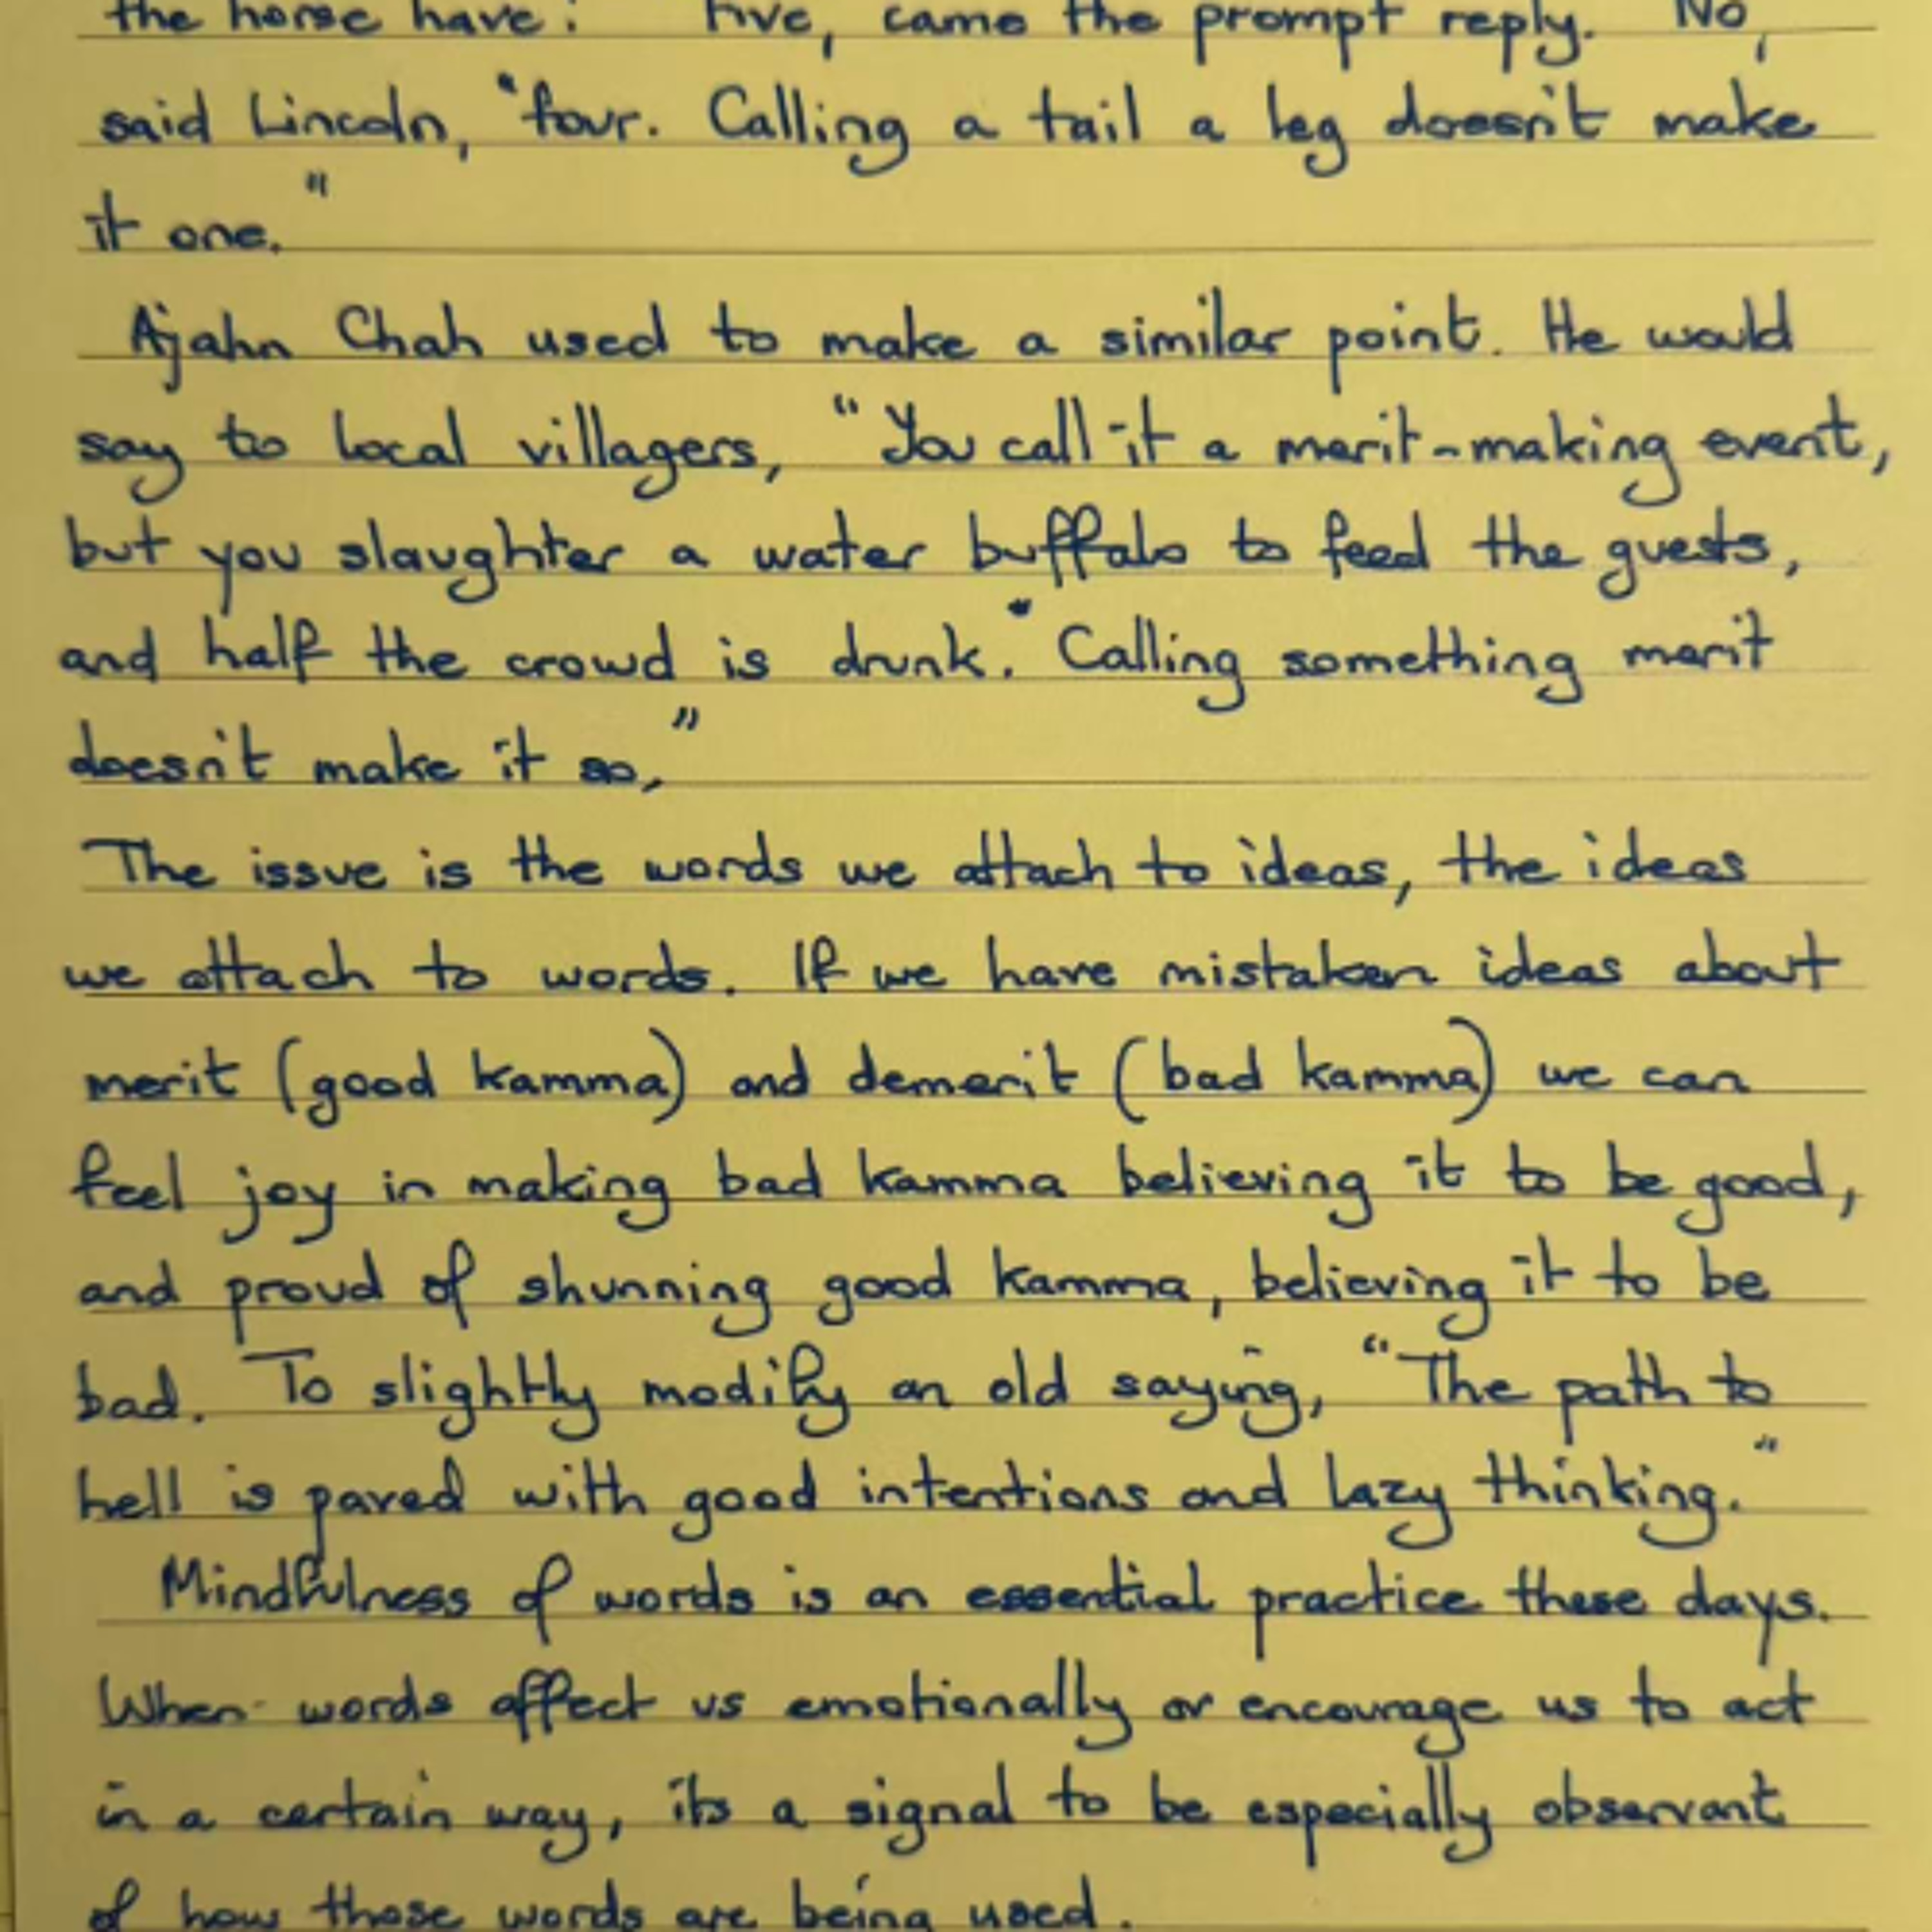 the horse have? Five, came the prompt reply. No,
said Lincoln, "four. Calling a tail a leg doesn't make
it one."
Ajahn Chah used to make a similar point. He would
say to local villagers, "You call it a merit-making event,
but you slaughter a water buffalo to feed the guests,
and half the crowd is drunk." Calling something merit
doesn't make it so,"
The issue is the words we attach to ideas, the ideas
we attach to words. If we have mistaken ideas about
merit (good kamma) and demerit (bad kamma) we can
feel joy in making bad kamma believing it to be good,
and proud of shunning good kamma, believing it to be
bad. To slightly modify an old saying, "The path to
hell is paved with good intentions and lazy thinking."
Mindfulness of words is an essential practice these days.
When words affect us emotionally or encourage us to act
in a certain way, its a signal to be especially observant
of how those words are being used.